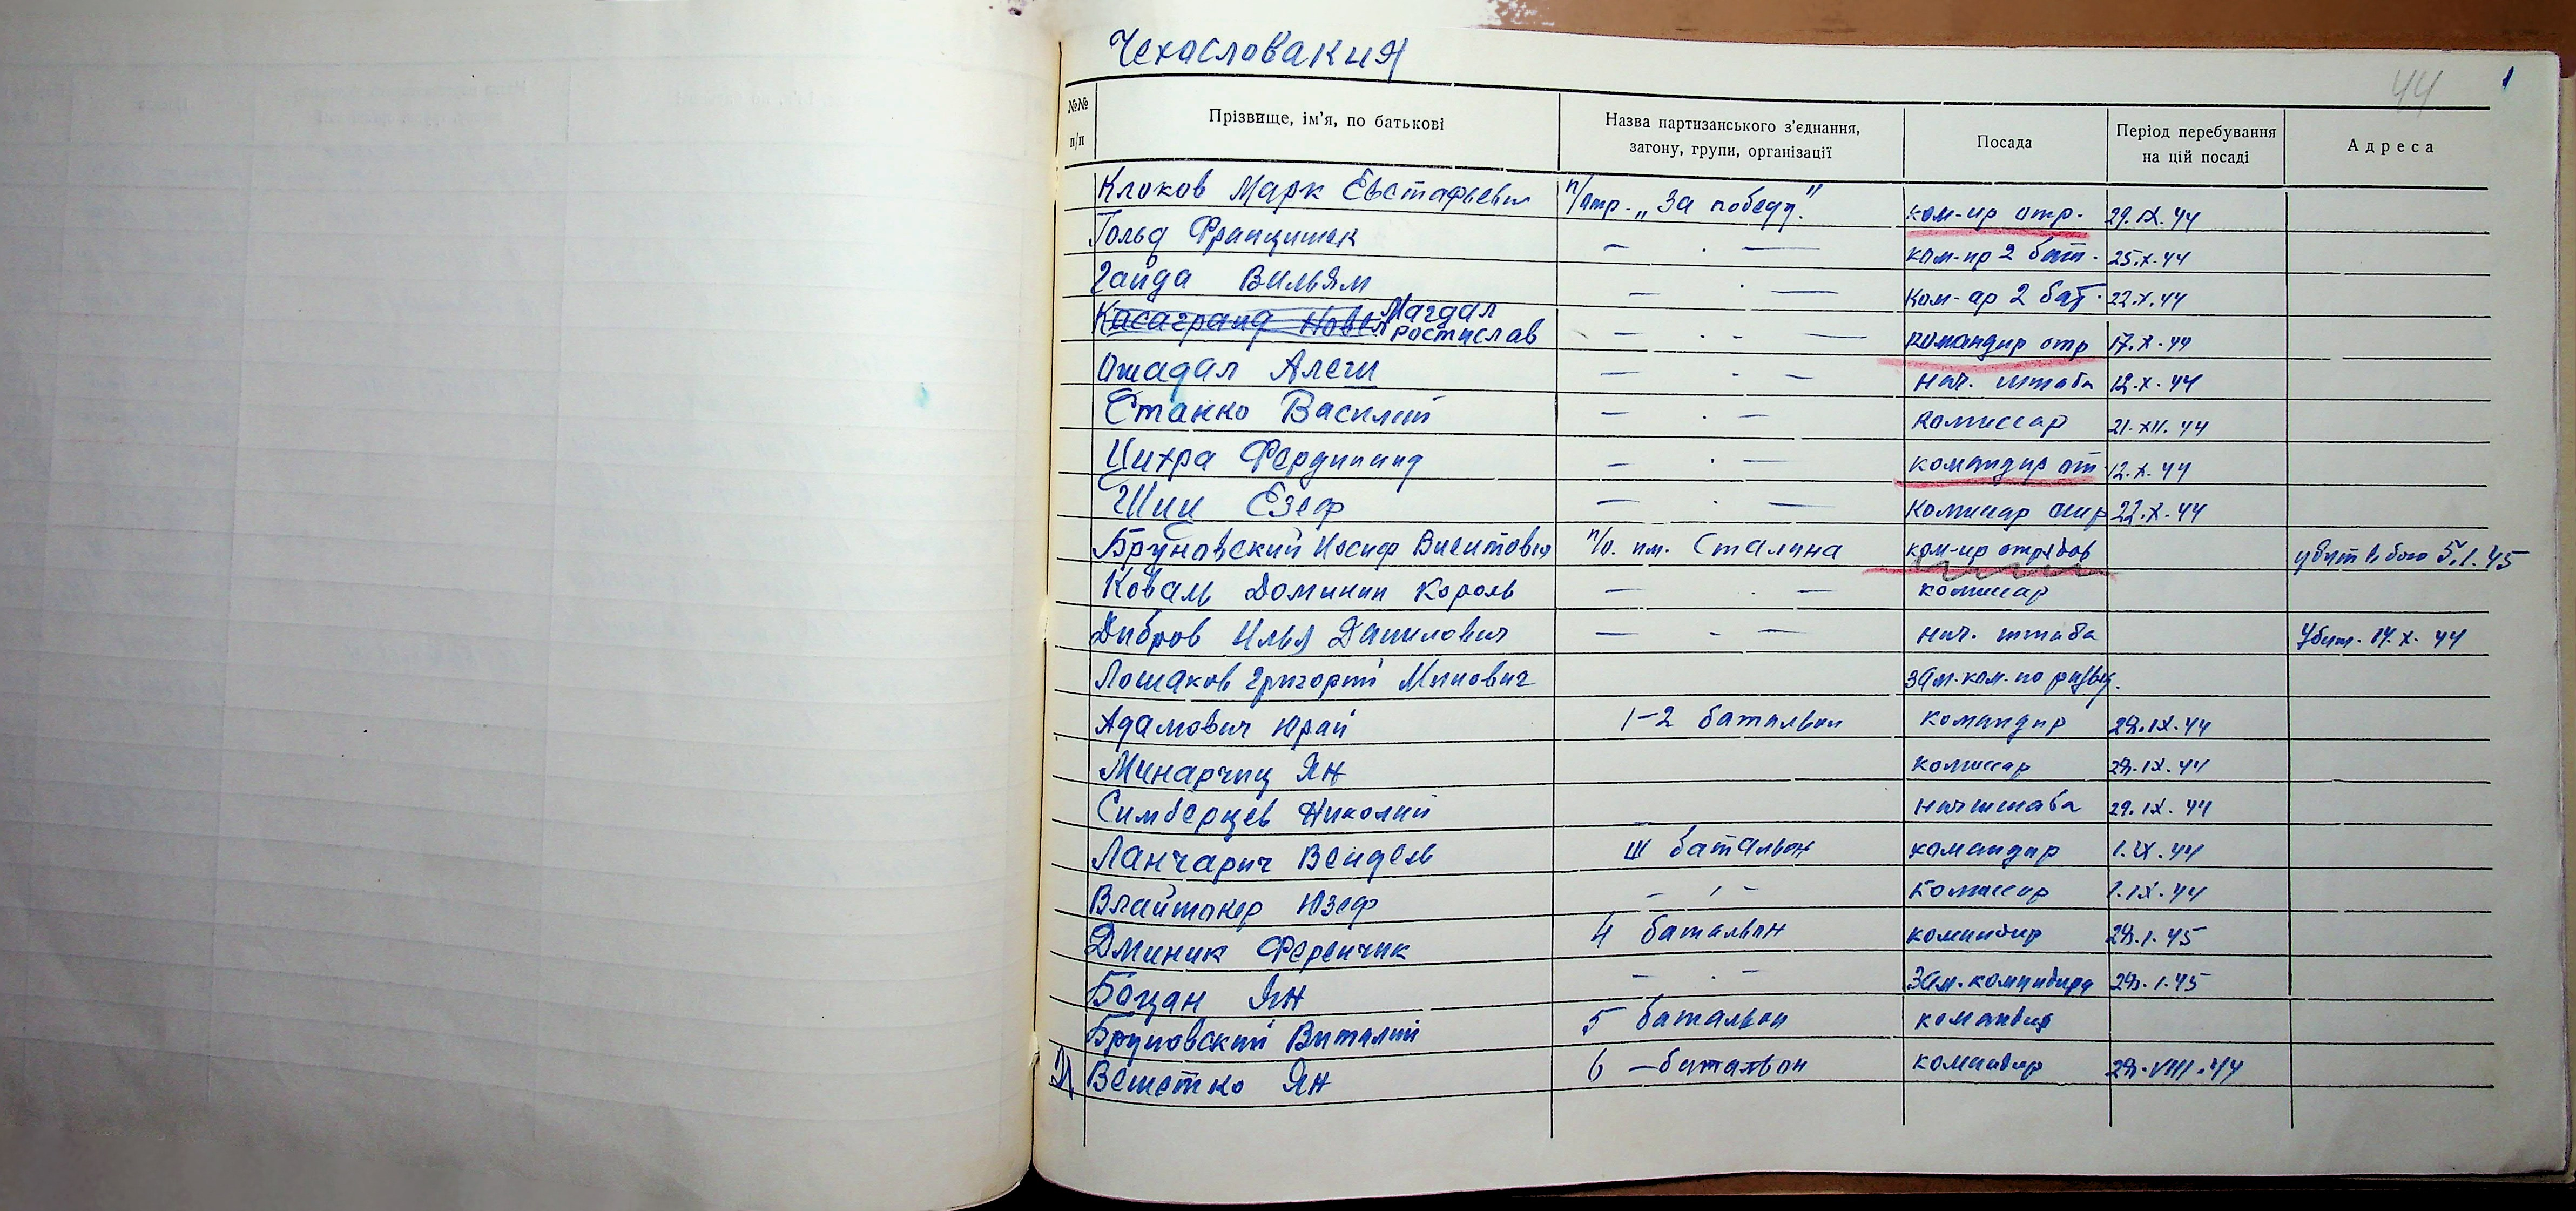 Чехословакия
44 1
№№ п/п Прізвище, ім'я, по батькові Назва партизанського з'єднання, загону, групи, організації Посада Період перебування на цій посаді Адреса
Клоков Марк Евстафьевич п/отр. „За победу" ком-ир отр. 29.IX.44
Гольд Францишек — . — ком-ир 2 бат. 25.X.44
Гайда Вильям — . — ком-ир 2 бат. 22.X.44
Касагранд Новел Магдал Ростислав — . — командир отр 17.X.44
Ошадал Алеш — . — нач. штаба 12.X.44
Станко Василий — . — Комиссар 21.XII.44
Цихра Фердинанд — . — командир от. 12.X.44
Шии Езеф — . — Комиссар 22.X.44
Бруновский Иосиф Висит п/о. им. Сталина ком-ир отрядов убит в бою 5.1.45
Коваль Доминик Король — . — комиссар
Дибров Илья Данилович — . — нач. штаба Убит. 14.X.44
Лошаков Григорий Минович зам. ком. по развед.
Адамович Юрай 1-2 батальон командир 29.IX.44
Минарчиц Ян комиссар 29.IX.44
Симберцев Николай начштаба 29.IX.44
Ланчарич Вендель III батальон командир 1.IX.44
Влайтакер Юзеф — " — Комиссар 1.IX.44
Дминик Ференчик 4 батальон командир 29.1.45
Боцан Ян — . — Зам. командира 29.1.45
Бруновский Виталий 5 батальон командир
21 Вешетко Ян 6 — батальон командир 29.VIII.44